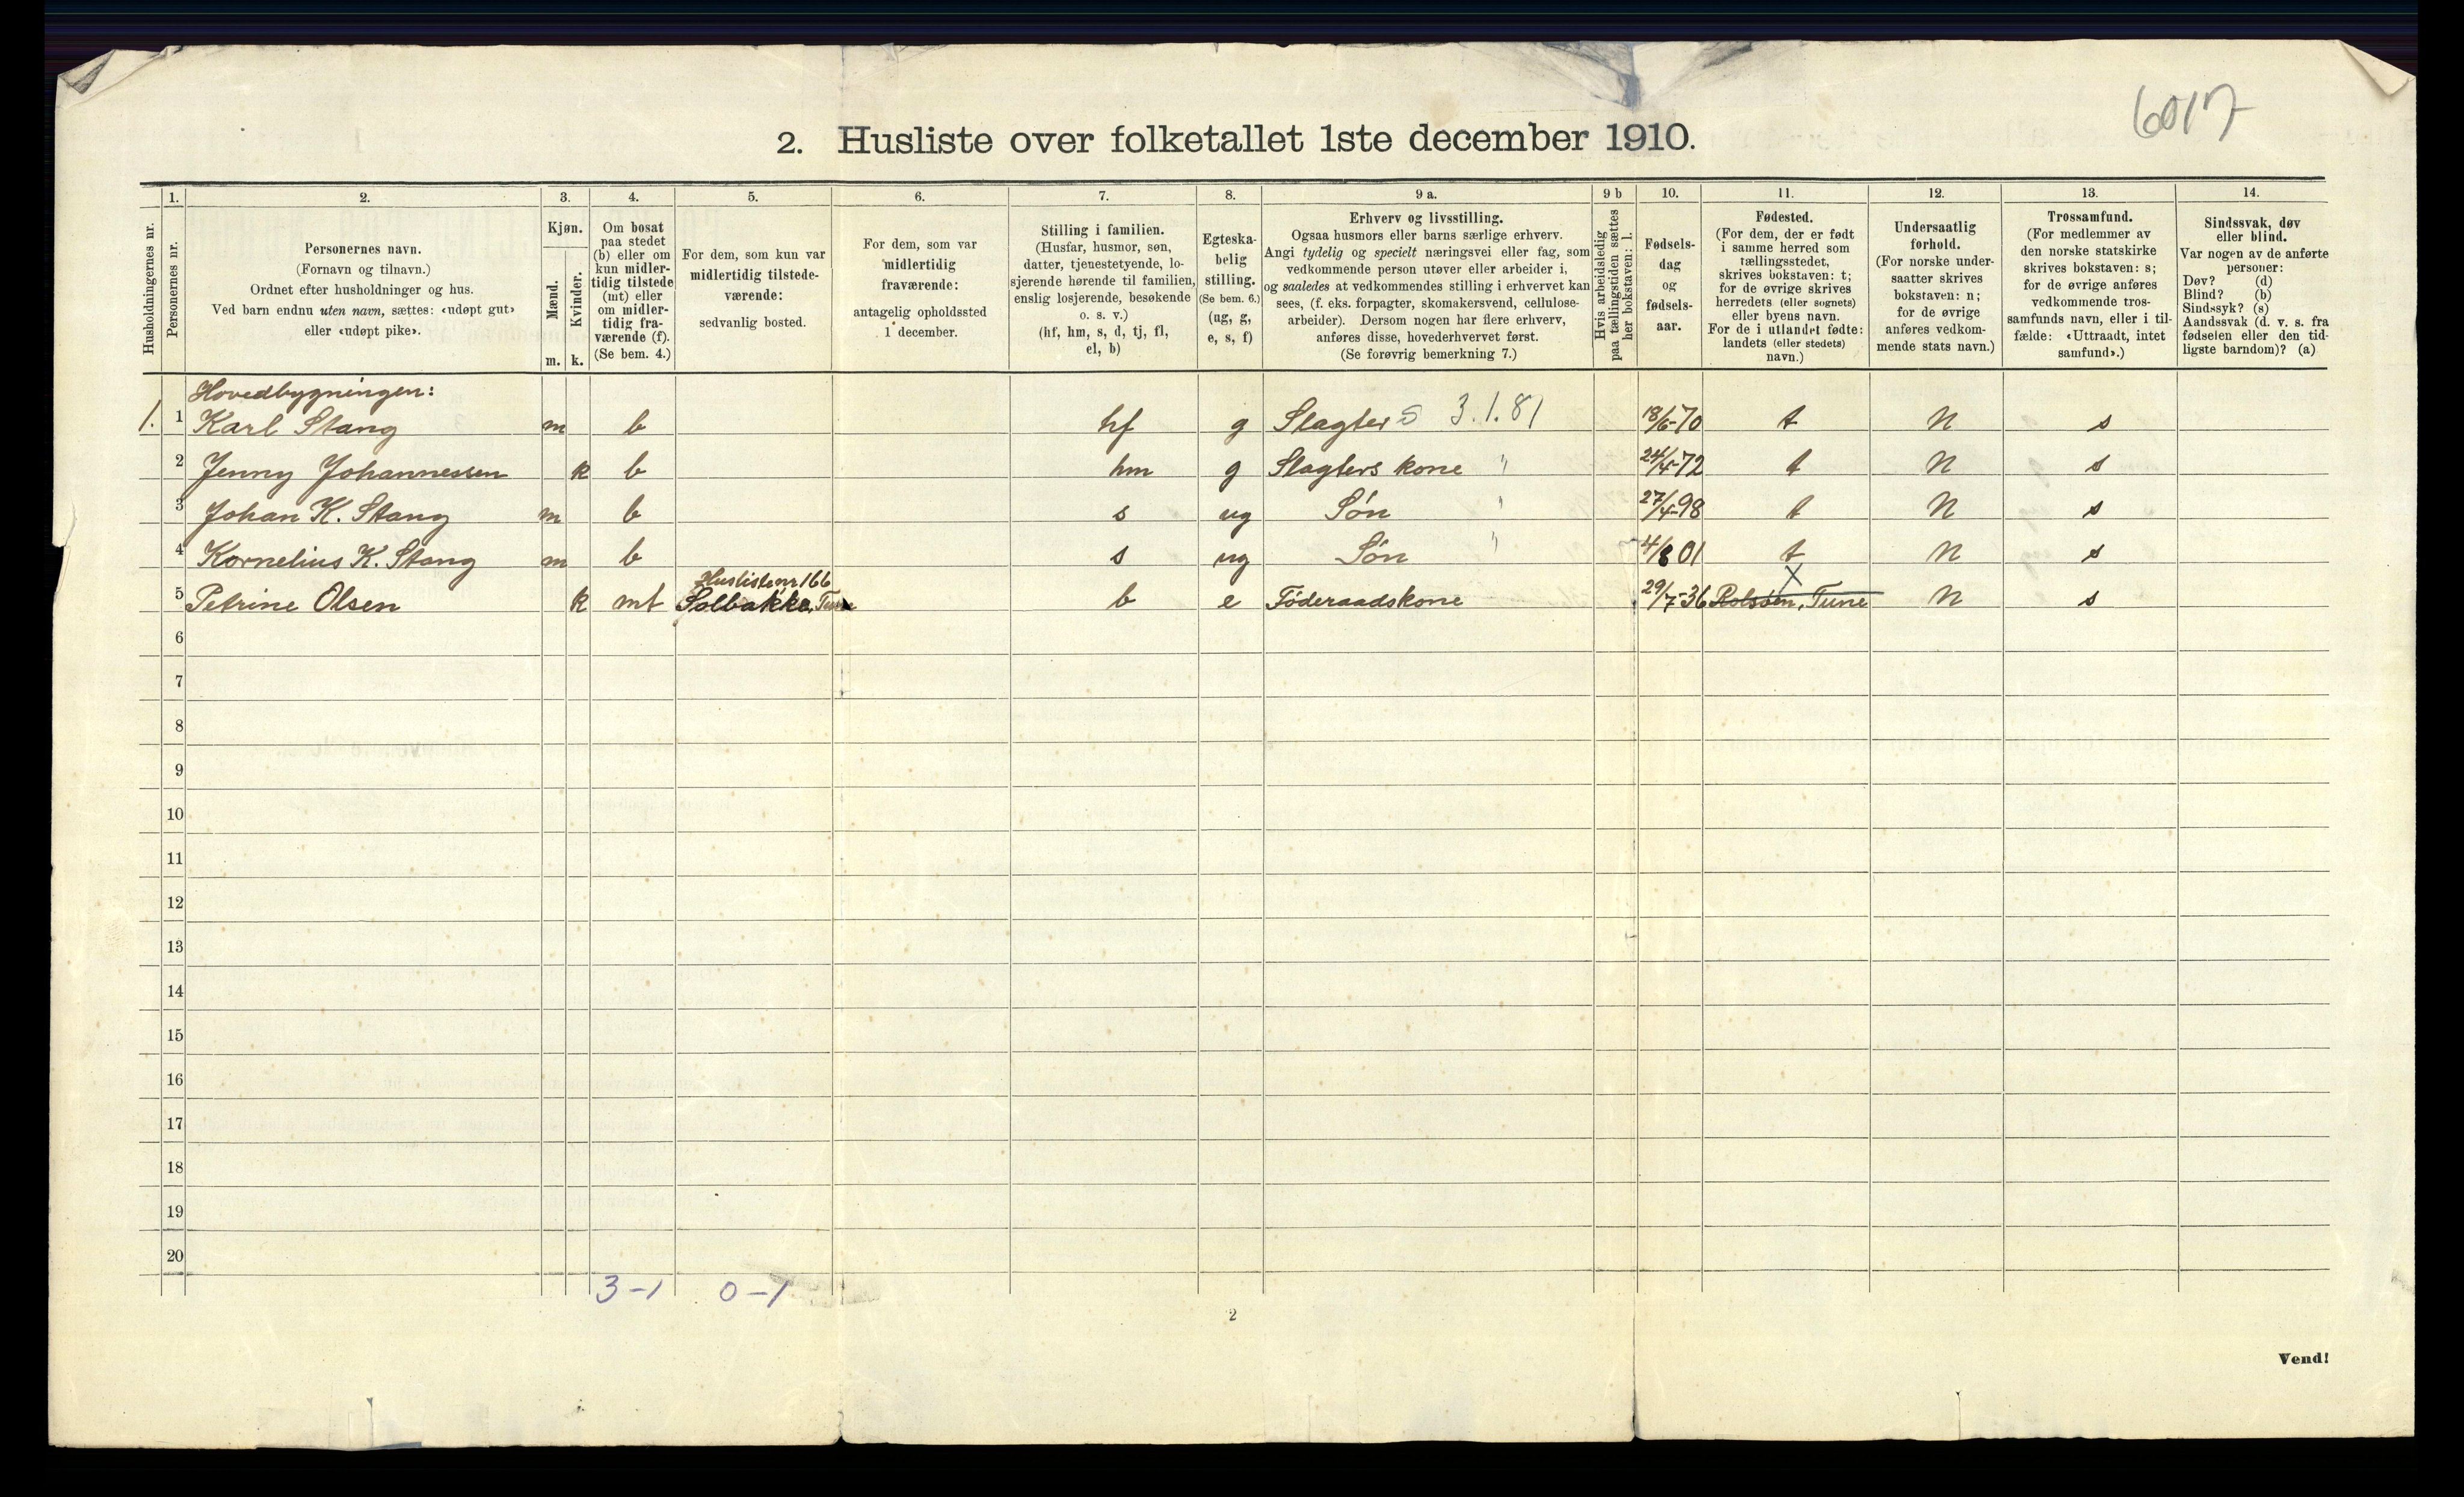 6017
2. Husliste over folketallet 1ste december 1910.
Husholdningernes nr.
1.
Personernes nr.
2.
Personernes navn.
(Fornavn og tilnavn.)
Ordnet efter husholdninger og hus.
Ved barn endnu uten navn, sættes: «udøpt gut»
eller «udøpt pike».
3.
Kjøn.
Mænd.
Kvinder.
m. k.
4.
Om bosat
paa stedet
(b) eller om
kun midler-
tidig tilstede
(mt) eller
om midler-
tidig fra-
værende (f).
(Se bem. 4.)
5.
For dem, som kun var
midlertidig tilstede-
værende:
sedvanlig bosted.
6.
For dem, som var
midlertidig
fraværende:
antagelig opholdssted
1 december.
7.
Stilling i familien.
(Husfar, husmor, søn,
datter, tjenestetyende, lo-
sjerende hørende til familien,
enslig losjerende, besøkende
o. s. v.)
(hf, hm, s, d, tj, fl,
el, b)
8.
Egteska-
belig
stilling.
(Se bem. 6.)
(ug, g,
e, s, f)
9 a.
Erhverv og livsstilling.
Ogsaa husmors eller barns særlige erhverv.
Angi tydelig og specielt næringsvei eller fag, som
vedkommende person utøver eller arbeider i,
og saaledes at vedkommendes stilling i erhvervet kan
sees, (f. eks. forpagter, skomakersvend, cellulose-
arbeider). Dersom nogen har flere erhverv,
anføres disse, hovederhvervet først.
(Se forøvrig bemerkning 7.)
9 b
Hvis arbeidsledig
paa tællingstiden sættes
her bokstaven: l.
10.
Fødsels-
dag
og
fødsels-
aar.
11.
Fødested.
(For dem, der er født
i samme herred som
tællingsstedet,
skrives bokstaven: t;
for de øvrige skrives
herredets (eller sognets)
eller byens navn.
For de i utlandet fødte:
landets (eller stedets)
navn.)
12.
Undersaatlig
forhold.
(For norske under-
saatter skrives
bokstaven: n;
for de øvrige
anføres vedkom-
mende stats navn.)
13.
Trossamfund.
(For medlemmer av
den norske statskirke
skrives bokstaven: s;
for de øvrige anføres
vedkommende tros-
samfunds navn, eller i til-
fælde: «Uttraadt, intet
samfund».)
14.
Sindssvak, døv
eller blind.
Var nogen av de anførte
personer:
Døv? (d)
Blind? (b)
Sindssyk? (s)
Aandssvak (d. v. s. fra
fødselen eller den tid-
ligste barndom)? (a)
Hovedbygningen:
1. 1 Karl Stang m b hf g Slagter S 3.1.81 18/6-70 t N s
2 Jenny Johannessen k b hm g Slagters kone " 24/4-72 t N s
3 Johan K. Stang m b s ug Søn " 27/4-98 t N s
4 Kornelius K. Stang m b s ug Søn " 4/8 01 t N s
Huslistenr 166 X
5 Petrine Olsen k mt Solbakke, Tune b e Föderaadskone 29/7-36 Rolsøen, Tune N s
6
7
8
9
10
11
12
13
14
15
16
17
18
19
20
3-1 0-1
2
Vend!